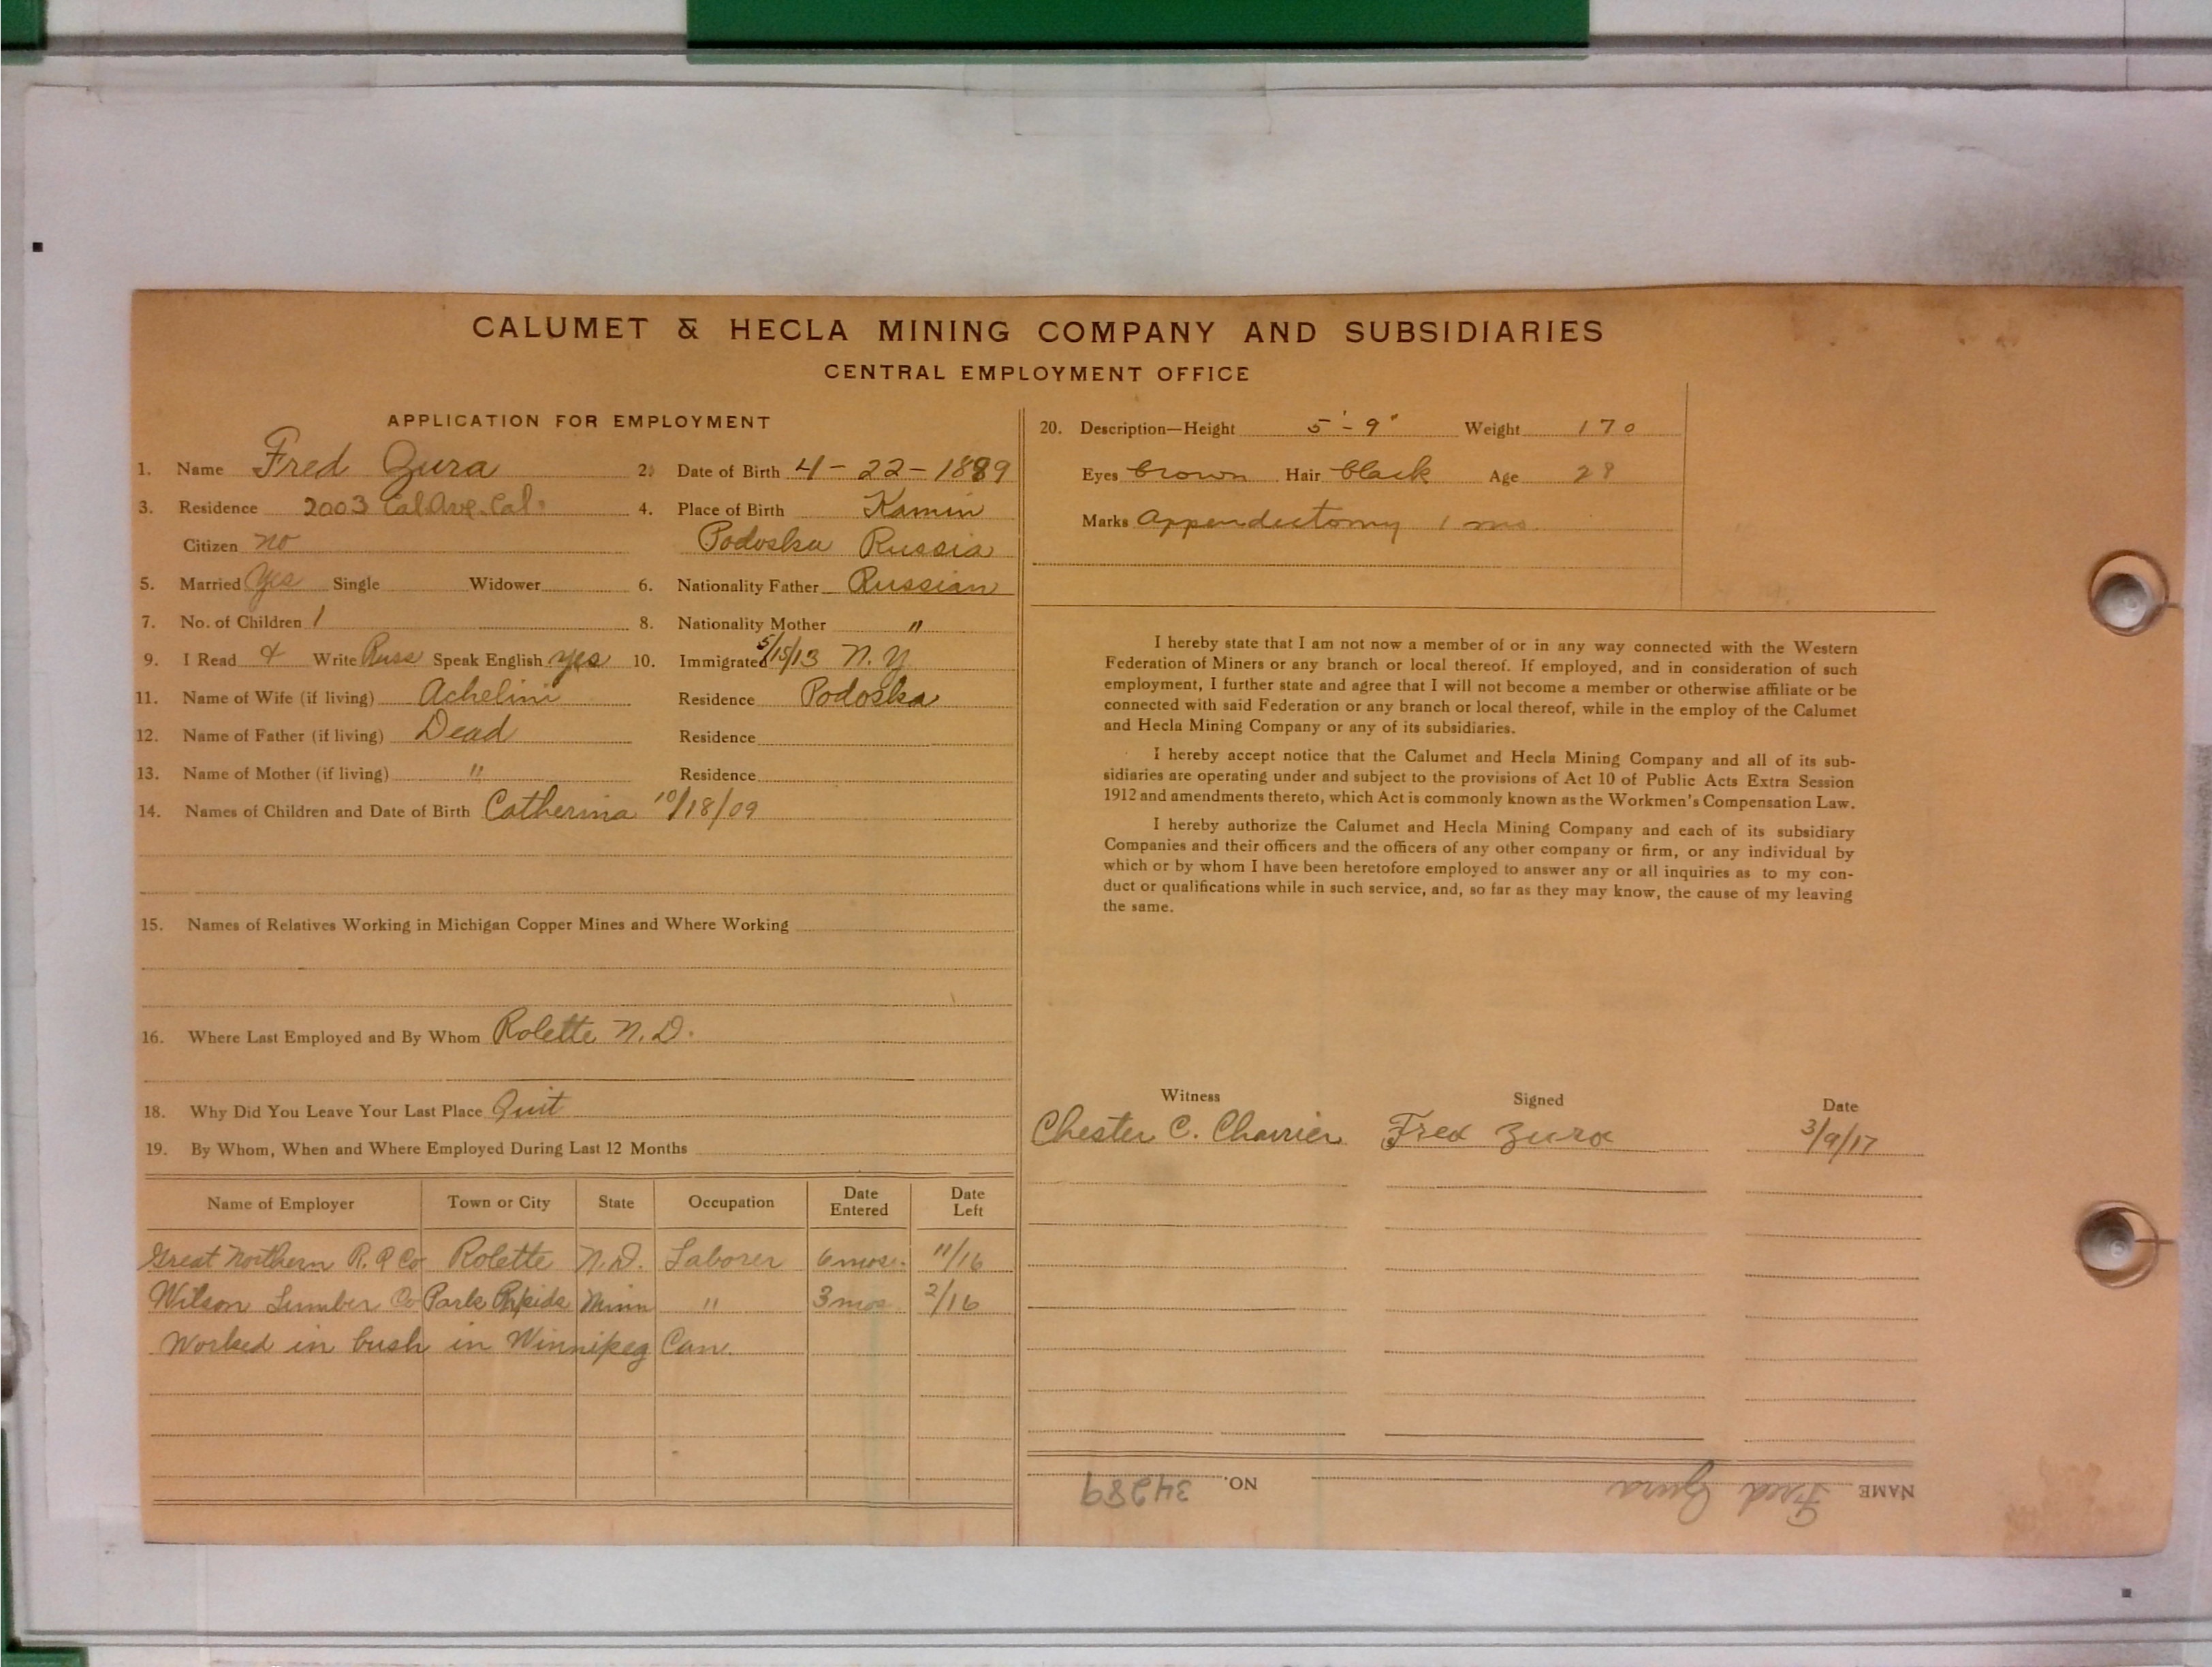 CALUMET & HECLA MINING COMPANY AND SUBSIDIARIES
CENTRAL EMPLOYMENT OFFICE
APPLICATION FOR EMPLOYMENT
1. Name Fred Zura 2. Date of Birth 4-22-1889
3. Residence 2003 Cal. Ave. Cal. 4. Place of Birth Kamin
Citizen no Podoska Russia
5. Married Yes Single Widower 6. Nationality Father Russian
7. No. of Children 1 8. Nationality Mother "
9. I Read & Write Russ Speak English yes 10. Immigrated 5/15/13 N.Y.
11. Name of Wife (if living) Achelini Residence Podoska
12. Name of Father (if living) Dead Residence
13. Name of Mother (if living) " Residence
14. Names of Children and Date of Birth Catherina 10/18/09
15. Names of Relatives Working in Michigan Copper Mines and Where Working
16. Where Last Employed and By Whom Rolette N.D.
18. Why Did You Leave Your Last Place Quit
19. By Whom, When and Where Employed During Last 12 Months
Name of Employer Town or City State Occupation Date Entered Date Left
Great Northern R.R Co Rolette N.D. Laborer 6 mos. 11/16
Wilson Lumber Co Park Rapids Minn " 3 mos. 2/16
Worked in bush in Winnipeg Can.
20. Description—Height 5'-9" Weight 170
Eyes brown Hair black Age 28
Marks Appendectomy 1 mo.
I hereby state that I am not now a member of or in any way connected with the Western
Federation of Miners or any branch or local thereof. If employed, and in consideration of such
employment, I further state and agree that I will not become a member or otherwise affiliate or be
connected with said Federation or any branch or local thereof, while in the employ of the Calumet
and Hecla Mining Company or any of its subsidiaries.
I hereby accept notice that the Calumet and Hecla Mining Company and all of its sub-
sidiaries are operating under and subject to the provisions of Act 10 of Public Acts Extra Session
1912 and amendments thereto, which Act is commonly known as the Workmen's Compensation Law.
I hereby authorize the Calumet and Hecla Mining Company and each of its subsidiary
Companies and their officers and the officers of any other company or firm, or any individual by
which or by whom I have been heretofore employed to answer any or all inquiries as to my con-
duct or qualifications while in such service, and, so far as they may know, the cause of my leaving
the same.
Witness Signed Date
Chester C. Charrier Fred Zura 3/9/17
NAME Fred Zura NO. 34289